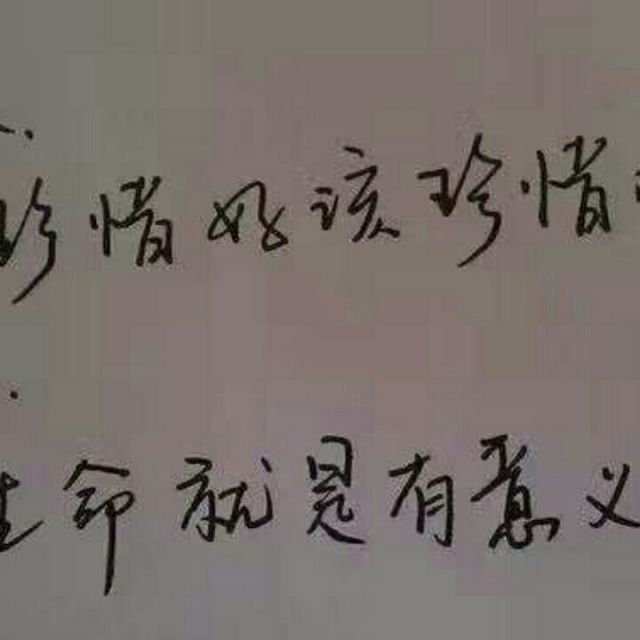 珍惜好该珍惜
生命就是有意义